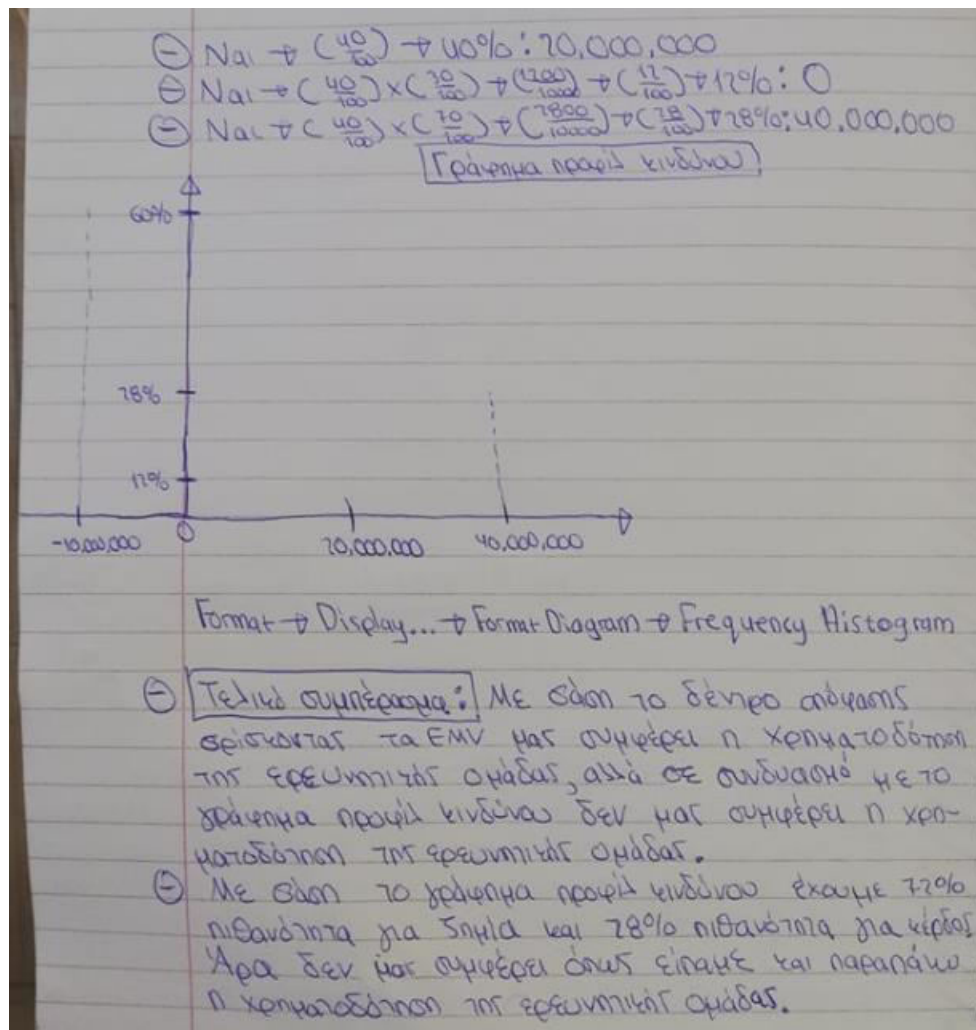 ⊖ Ναι → (40/100) → 40%: 20.000.000
⊖ Ναι → (40/100) × (30/100) → (1200/1000) → (12/100) → 12%: 0
⊖ Ναι → (40/100) × (70/100) → (2800/10000) → (28/100) → 28%: 40.000.000
Γράφημα προφίλ κινδύνου
60%
28%
12%
-10.000.000 0 20,000.000 40.000.000
Format → Display... → Format Diagram → Frequency Histogram
⊖ Τελικό συμπέρασμα: Με βάση το δέντρο απόφασης
βρίσκοντας τα EMV μας συμφέρει η χρηματοδότηση
της ερευνητικής ομάδας, αλλά σε συνδυασμό με το
γράφημα προφίλ κινδύνου δεν μας συμφέρει η χρη-
ματοδότηση της ερευνητικής ομάδας.
⊖ Με βάση το γράφημα προφίλ κινδύνου έχουμε 72%
πιθανότητα για ζημία και 28% πιθανότητα για κέρδος
Άρα δεν μας συμφέρει όπως είπαμε και παραπάνω
η χρηματοδότηση της ερευνητικής ομάδας.